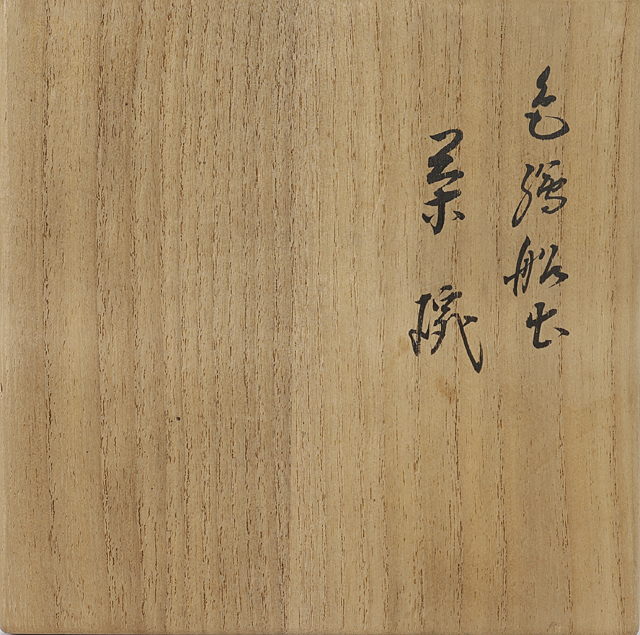 色絵船出
茶碗